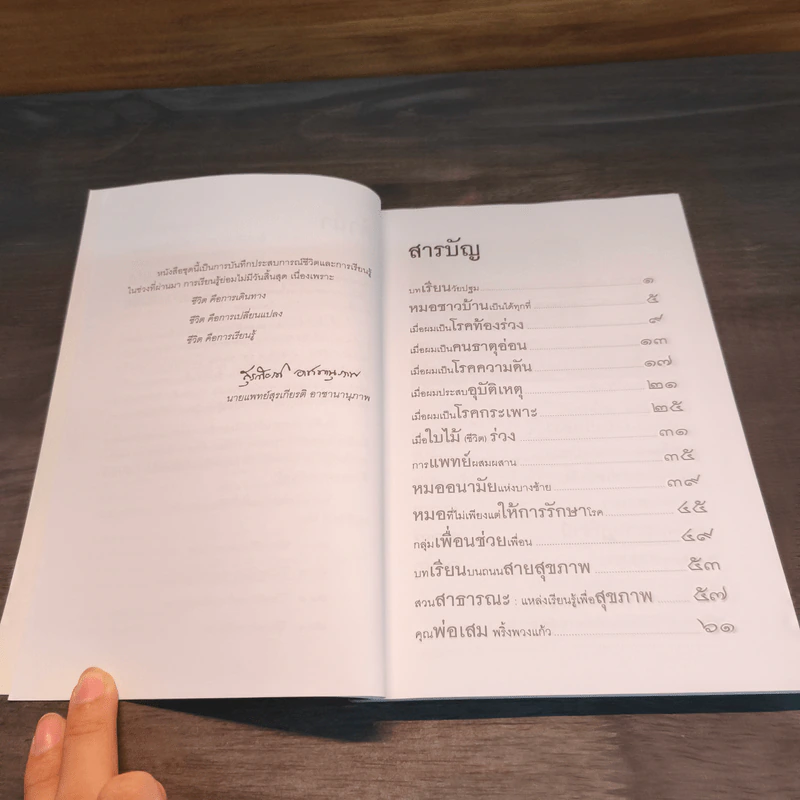 หนังสือชุดนี้เป็นการบันทึกประสบการณ์ชีวิตและการเรียนรู้
ในช่วงที่ผ่านมา การเรียนรู้ย่อมไม่มีวันสิ้นสุด เนื่องเพราะ
ชีวิต คือการเดินทาง
ชีวิต คือการเปลี่ยนแปลง
ชีวิต คือการเรียนรู้
สุรเกียรติ อาชานานุภาพ
นายแพทย์สุรเกียรติ อาชานานุภาพ
สารบัญ
บทเรียนวัยปฐม ๑
หมอชาวบ้านเป็นได้ทุกที่ ๕
เมื่อผมเป็นโรคท้องร่วง ๙
เมื่อผมเป็นคนธาตุอ่อน ๑๓
เมื่อผมเป็นโรคความดัน ๑๗
เมื่อผมประสบอุบัติเหตุ ๒๑
เมื่อผมเป็นโรคกระเพาะ ๒๕
เมื่อใบไม้ (ชีวิต) ร่วง ๓๑
การแพทย์ผสมผสาน ๓๕
หมออนามัยแห่งบางซ้าย ๓๙
หมอที่ไม่เพียงแต่ให้การรักษาโรค ๔๕
กลุ่มเพื่อนช่วยเพื่อน ๔๙
บทเรียนบนถนนสายสุขภาพ ๕๓
สวนสาธารณะ : แหล่งเรียนรู้เพื่อสุขภาพ ๕๗
คุณพ่อเสม พริ้งพวงแก้ว ๖๑